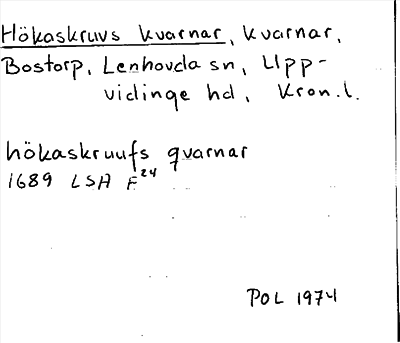 Hökaskruvs kvarnar, kvarnar,
Bostorp, Lenhovda sn, Upp-
vidinge hd, Kron.l.
hökaskruufs qvarnar
1689 LSA F24
POL 1974